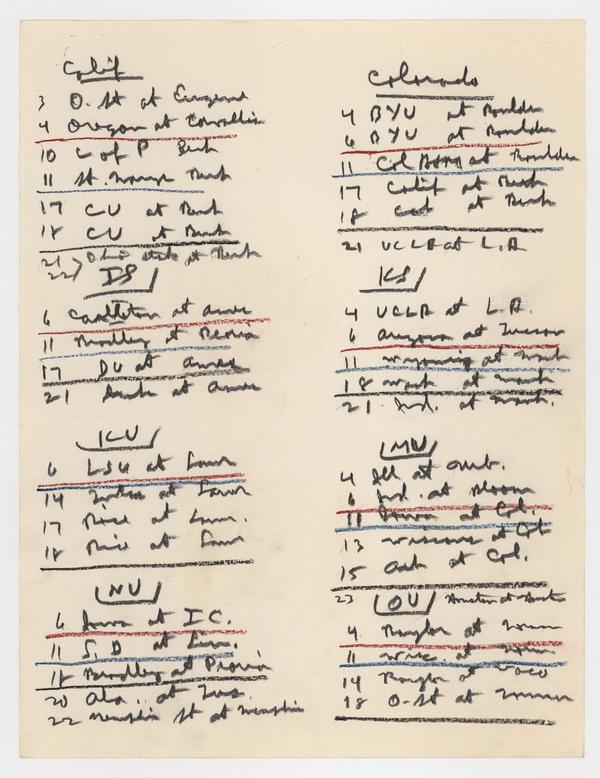 Calif
3 O. St at Eugene
4 Oregon at Corvallis
10 C of P Berk
11 St. Berk
17 CU at Berk
18 CU at Berk
21 22 Ohio state at Berk
IS
6 Carlteton at Ames
11 Bradley at Peoria
17 DU at Ames
21 at Ames
KU
6 LSU at Lawr
14 at Lawr
17 Rice at Lawr.
18 Rice at Lawr
NU
6 Iowa at I C.
11 S. D at Lin.
18 Bradley at Peoria
20 Ala .. at Tus.
22 Memphis St at Memphis
Colorado
4 BYU at Boulder
6 BYU at Boulder
11 Col at Boulder
17 Calif at Berk
18 Cal at Berk
21 UCLA at L.A.
KS
4 UCLA at L.A.
6 Arizona at Tucson
11 Wyoming at Manh
18 at Manh
21 Ind. at Manh.
MU
4 at
6 Ind. at Bloom
11 Iowa at Col.
13 Wisconsin at Col
15 at Col.
23 OU Houston at Houston
4 Baylor at Norm
11 Wisc. at Norm
14 Baylor at Waco
18 O-St at Norman